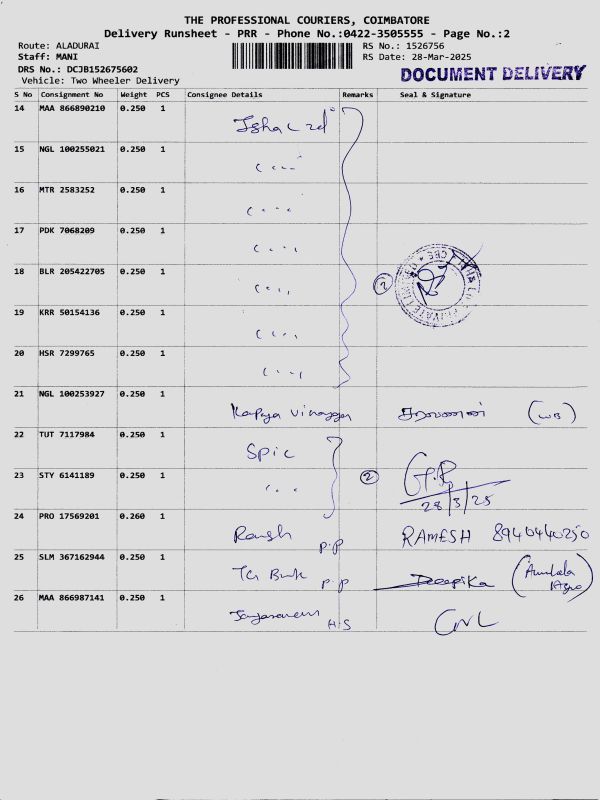 THE PROFESSIONAL COURIERS, COIMBATORE
Delivery Runsheet - PRR - Phone No.:0422-3505555 - Page No.:2
Route: ALADURAI RS No.: 1526756
Staff: MANI RS Date: 28-Mar-2025
DRS No.: DCJB152675602
Vehicle: Two Wheeler Delivery DOCUMENT DELIVERY
S No Consignment No Weight PCS Consignee Details Remarks Seal & Signature
14 MAA 866890210 0.250 1
15 NGL 100255021 0.250 1
16 MTR 2583252 0.250 1
17 PDK 7068209 0.250 1
18 BLR 205422705 0.250 1 2
19 KRR 50154136 0.250 1
20 HSR 7299765 0.250 1
21 NGL 100253927 0.250 1 சரவணன் (WB)
22 TUT 7117984 0.250 1 SPIC
23 STY 6141189 0.250 1 2 28/3/25
24 PRO 17569201 0.260 1 P.P RAMESH 8940440250
25 SLM 367162944 0.250 1 P.P Deepika
26 MAA 866987141 0.250 1 H.S